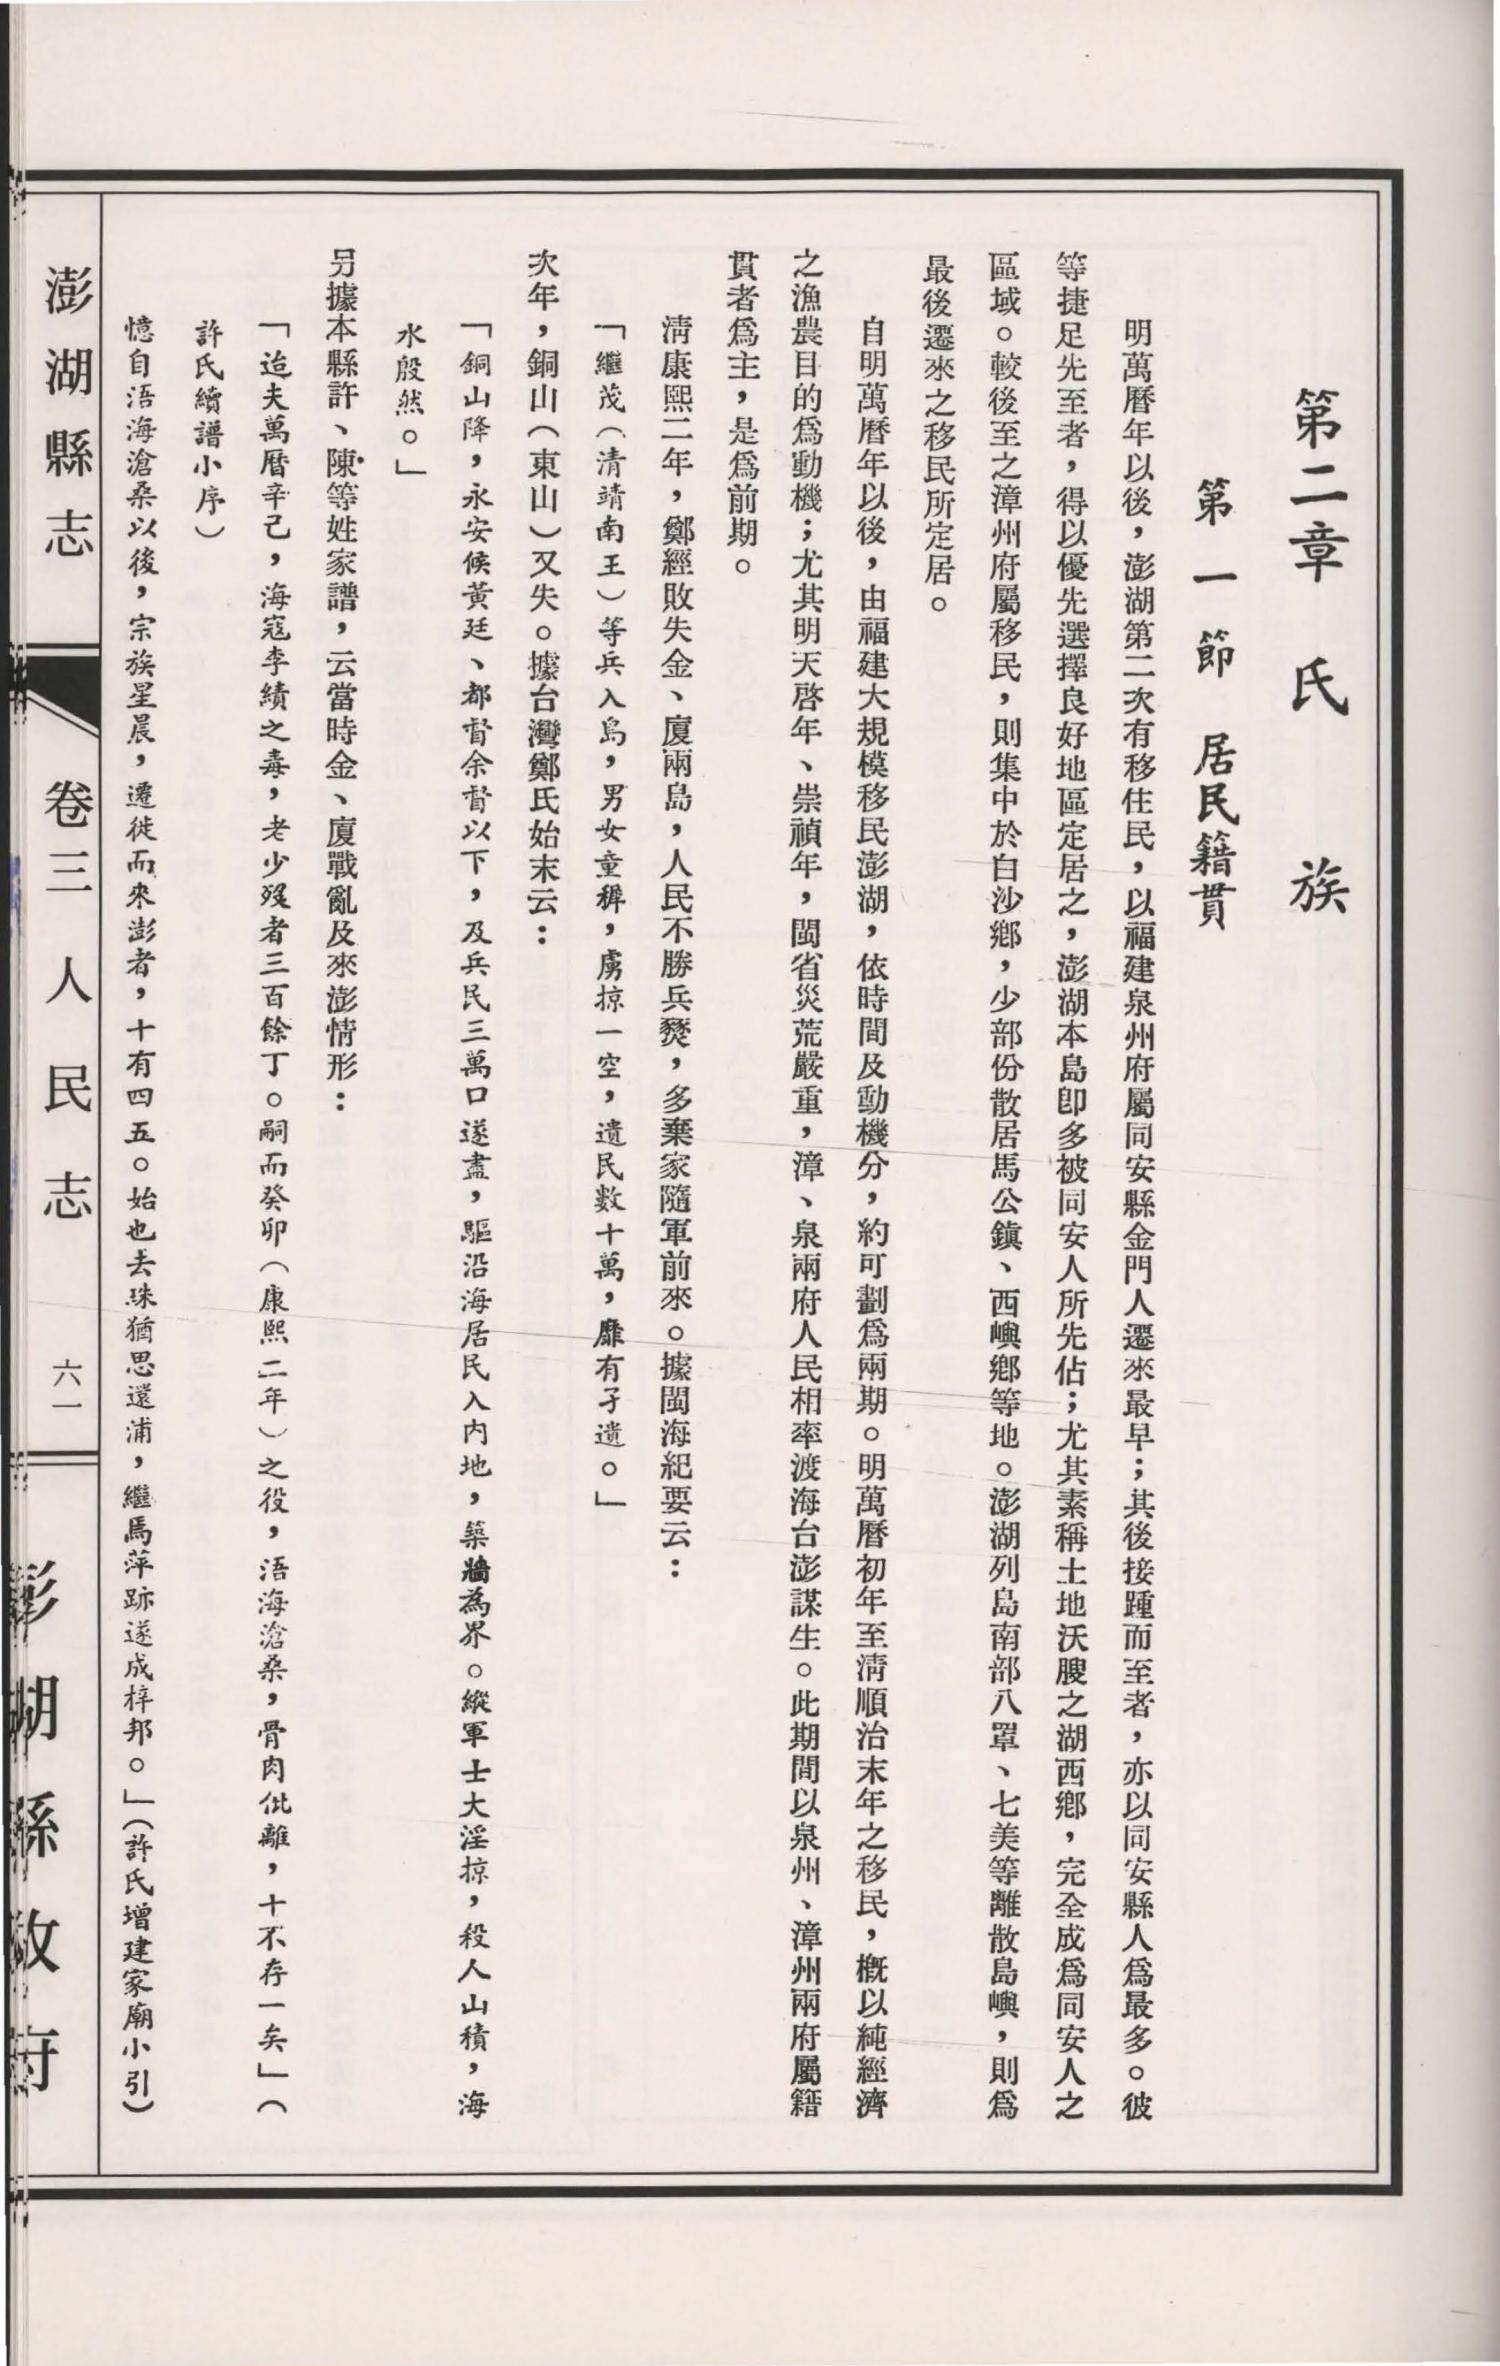 第二章 氏族
第一節 居民籍貫
明萬曆年以後，澎湖第二次有移住民，以福建泉州府屬同安縣金門人遷來最早；其後接踵而至者，亦以同安縣人爲最多。彼
等捷足先至者，得以優先選擇良好地區定居之，澎湖本島卽多被同安人所先佔；尤其素稱土地沃腴之湖西鄉，完全成爲同安人之
區域。較後至之漳州府屬移民，則集中於白沙鄉，少部份散居馬公鎮、西嶼鄉等地。澎湖列島南部八罩、七美等離散島嶼，則爲
最後遷來之移民所定居。
自明萬曆年以後，由福建大規模移民澎湖，依時間及動機分，約可劃爲兩期。明萬曆初年至清順治末年之移民，概以純經濟
之漁農目的爲動機；尤其明天啓年、崇禎年，閩省災荒嚴重，漳、泉兩府人民相率渡海台澎謀生。此期間以泉州、漳州兩府屬籍
貫者爲主，是爲前期。
清康熙二年，鄭經敗失金、廈兩島，人民不勝兵燹，多棄家隨軍前來。據閩海紀要云：
「繼茂（清靖南王）等兵入島，男女童穉，虜掠一空，遺民数十萬，靡有孑遺。」
次年，銅山（東山）又失。據台灣鄭氏始末云：
「銅山降，永安候黃廷、都督余督以下，及兵民三萬口遂盡，驅沿海居民入内地，築牆為界。縱軍士大淫掠，殺人山積，海
水殷然。」
另據本縣許、陳等姓家譜，云當時金、廈戰亂及來澎情形：
「迨夫萬曆辛己，海寇李績之毒，老少殁者三百餘丁。嗣而癸卯（康熙二年）之役，浯海滄桑，骨肉仳離，十不存一矣」（
許氏續譜小序）
憶自浯海滄桑以後，宗族星晨，遷徙而來澎者，十有四五。始也去珠猶思還浦，繼焉萍跡遂成梓邦。」（許氏增建家廟小引）
澎湖縣志
卷三 人民志
六一
澎湖縣政府